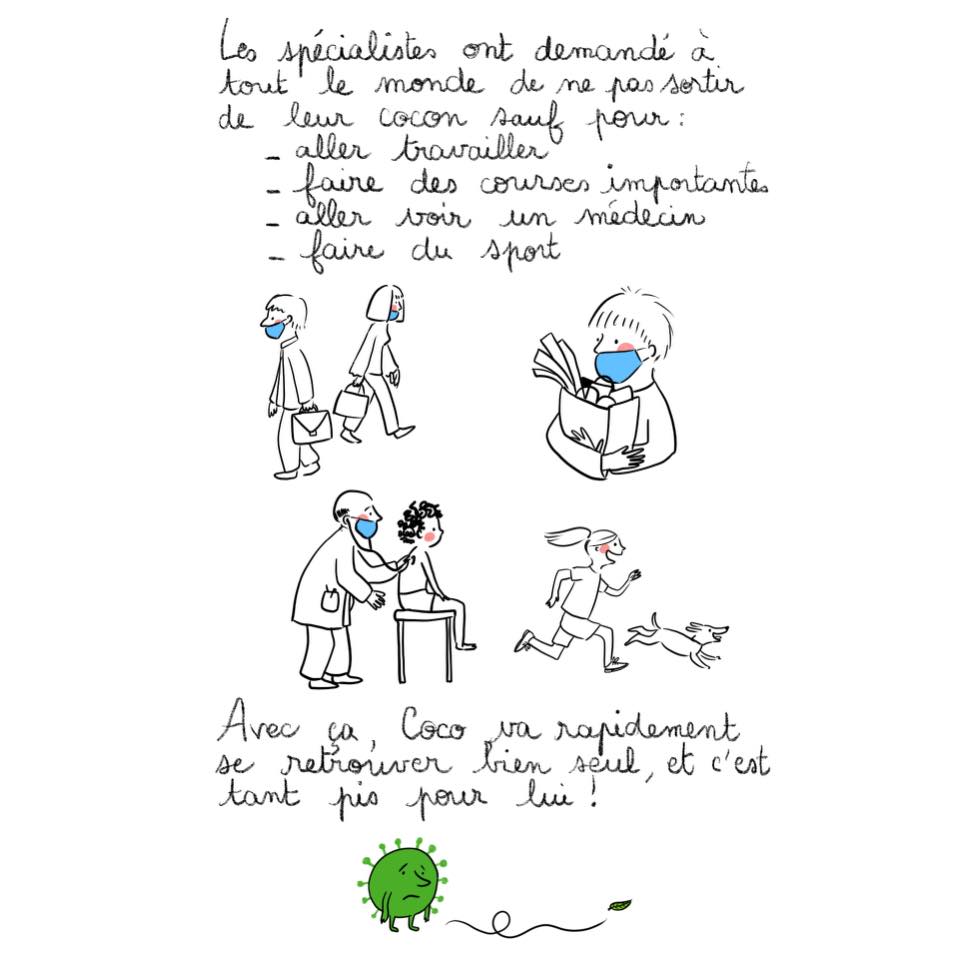 Les spécialistes ont demandé à
tout le monde de ne pas sortir
de leur cocon sauf pour :
- aller travailler
- faire des courses importantes
- aller voir un médecin
- faire du sport
Avec ça, Coco va rapidement
se retrouver bien seul, et c'est
tant pis pour lui !